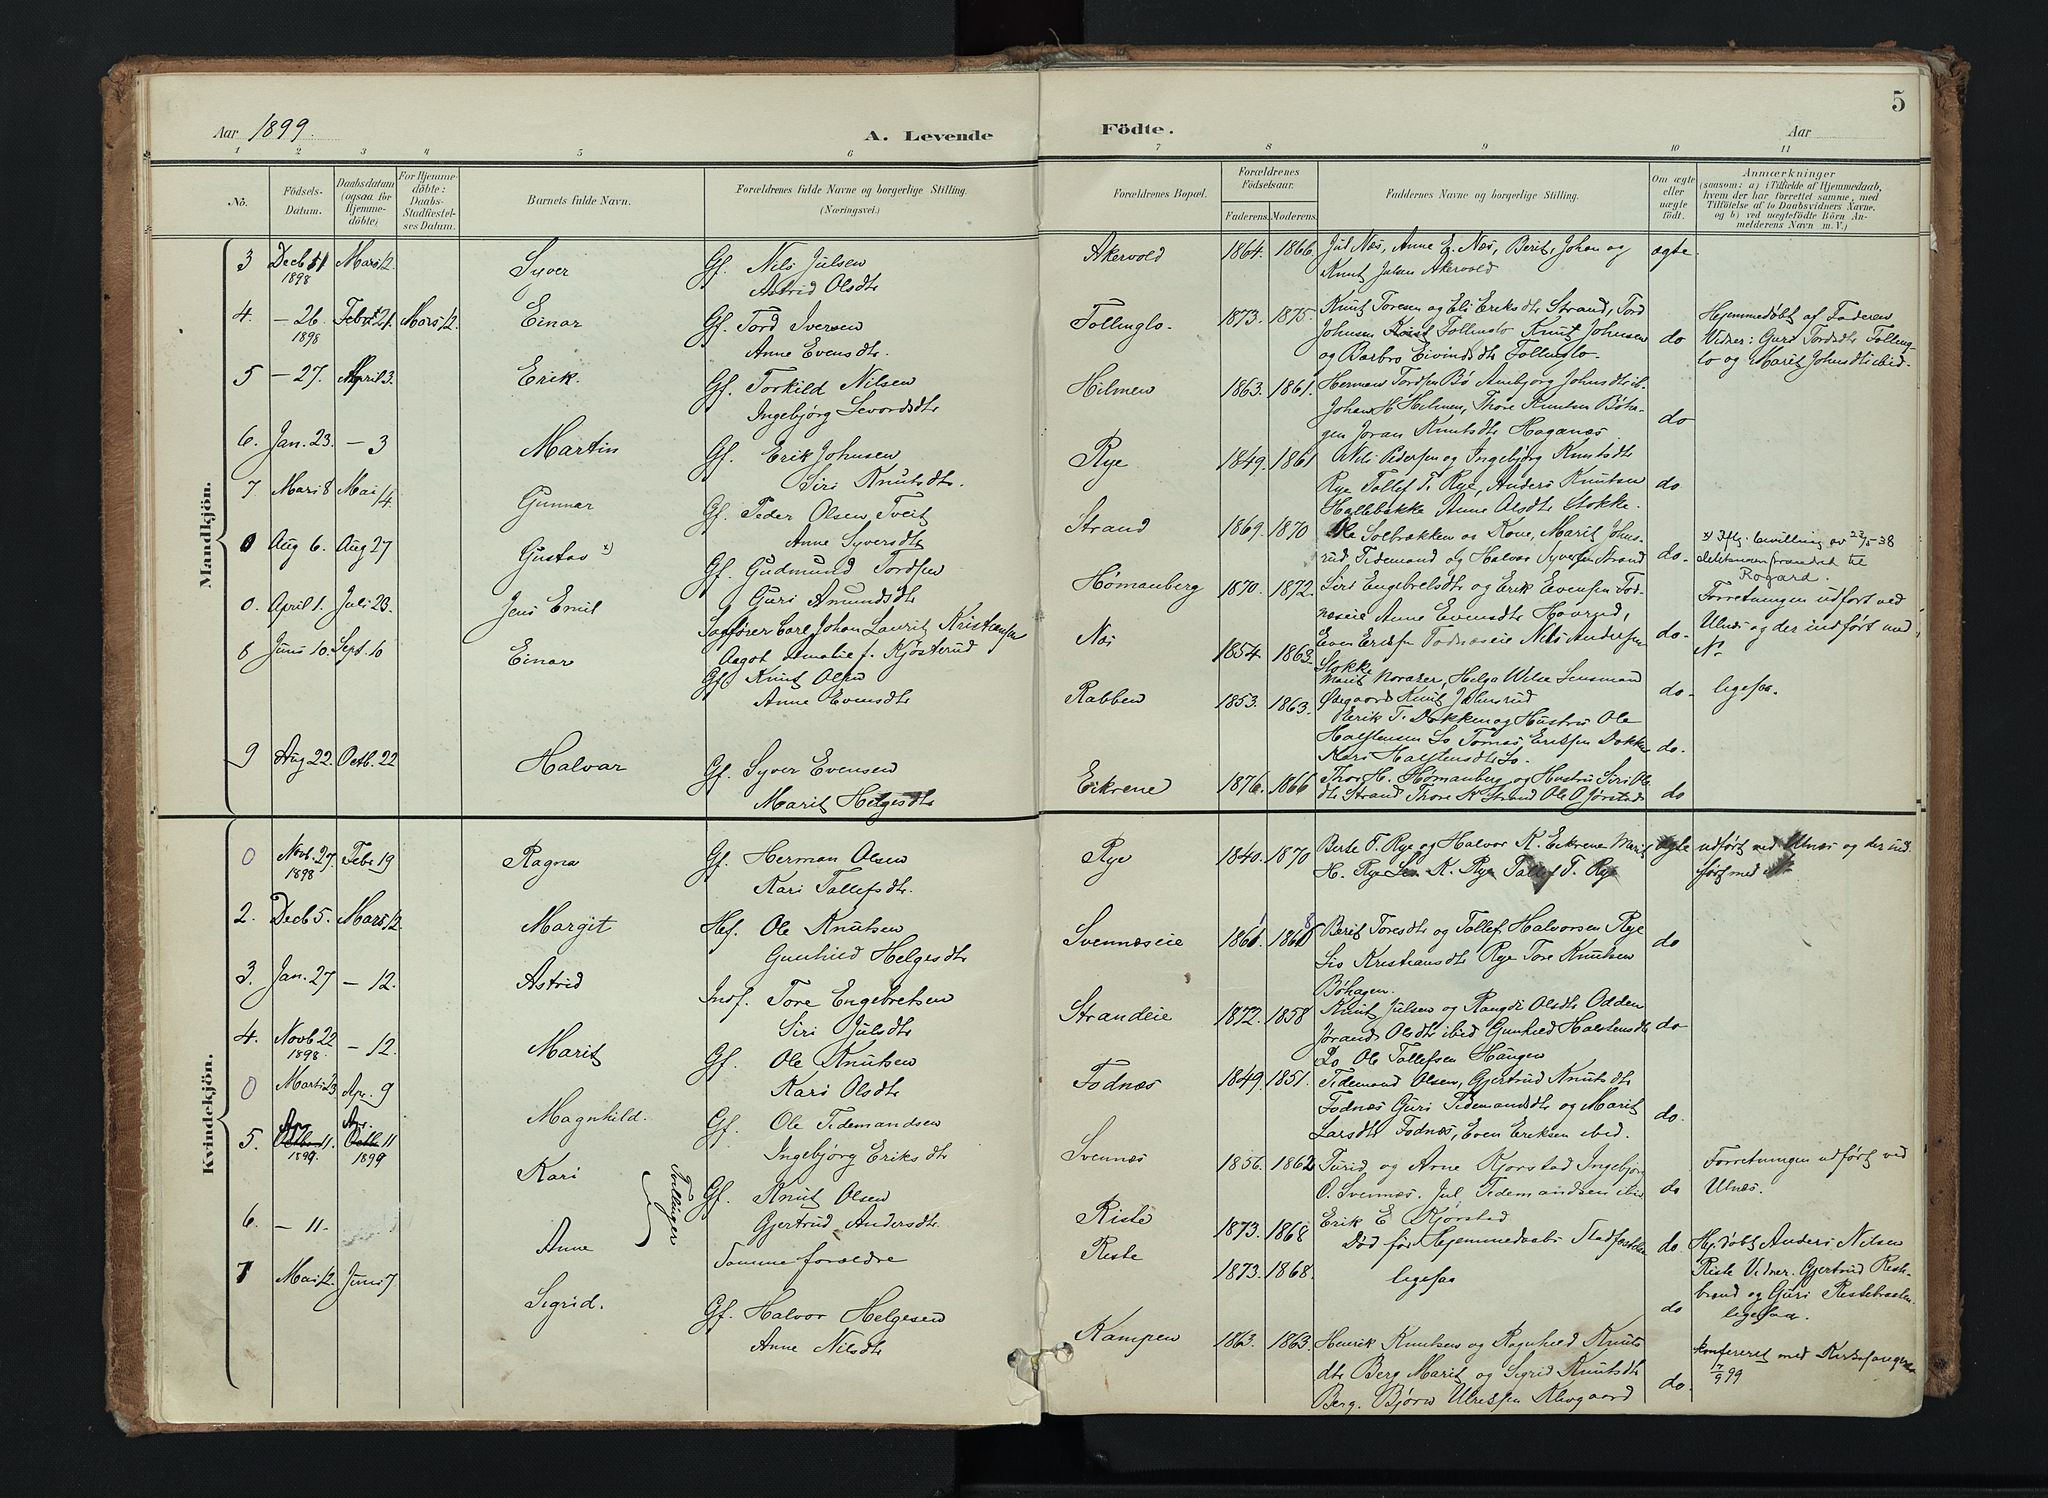 5
Aar 1899.
A. Levende
Födte.
Aar
1 2 3 4 5 6 7 8 9 10 11
No.
Födsels-
Datum.
Daabsdatum
(ogsaa for
Hjemme-
döbte)
For Hjemme-
döbte:
Daabs-
Stadfæstel-
ses Datum.
Barnets fulde Navn.
Forældrenes fulde Navne og borgerlige Stilling.
(Næringsvei.)
Forældrenes Bopæl.
Forældrenes
Födselsaar.
Faderens. Moderens.
Faddernes Navne og borgerlige Stilling.
Om ægte
eller
uægte
födt.
Anmærkninger
(saasom: a) i Tilfælde af Hjemmedaab,
hvem der har forrettet samme, med
Tilföielse af to Daabsvidners Navne.
og b) ved uægtefödte Börn An-
melderens Navn m. V.)
Mandkjön.
3 Decb 11 Mars 12. Syver Gf. Nils Julsen Akervold 1864. 1866. Jul Næs, Anne E. Næs, Berit, Johan og ægte
1898 Astrid Olsdtr Knut Julsen Akervold
4. — 26 Febr 21. Mars 12. Einar Gf. Tord Iversen Follinglo 1873. 1875. Knut Toresen og Eli Eriksdtr Strand, Tord do Hjemmedøbt af Faderen
1898 Anne Evensdtr. Johnsen Follinglo Knut Johnsen Vidner: Guri Tordsdtr Folling-
og Barbro Eivindsdtr Follinglo. lo og Marit Johnsdtr ibid.
5 — 27. April 3. Erik. Gf. Torkild Nilsen Hilmen 1863. 1861. Herman Tordsen Bø Ambjørg Johnsdtr ib. do
Ingebjørg Sevordsdtr Johan H Hilmen, Thore Knutsen Bøha-
gen Joran Knutsdtr Haganæs
6. Jan. 23. — 3 Martin Gf. Erik Johnsen Rye 1849. 1861 Nils Pedersen og Ingebjørg Knutsdtr do
Siri Knutsdtr. Rye Tollef T. Rye, Anders Knutsen
Hallebakke Anne Olsdtr Stokke.
7 Mars 8 Mai 14. Gunnar Gf. Peder Olsen Tveit Strand 1869. 1870 Ole Solbrækken og Kone, Marit Johns-
Anne Syversdtr rud Tidemand og Halvor Syversen Strand
0 Aug 6. Aug 27 Gustav x) Gf. Gudmund Tordsen Hømanberg 1870. 1872. Siri Engebretsdtr og Erik Evensen Fod- do. x) Iflg. bevilling av 23/5-38
Guri Amundsdtr næseie Anne Evensdtr Hovrud, forandret til
Rogard.
0. April 1. Juli 23. Jens Emil Sagfører Carl Johan Laurits Kristiansen Næs 1854. 1863. Even Eriksen Fodnæseie Nils Andresen do. Forretningen udført ved
Aagot Amalie f. Kjøsterud Stokke Ulnæs og der indført med
Marit Noraker, Helga Wilse Lensmand No
8 Juni 10. Sept. 10 Einar Gf. Knut Olsen Rabben 1853. 1863. Ødegaard Knut Johnsrud do. ligesaa.
Anne Evensdtr Erik T. Dokken og Hustru Ole
Halstensen Lo Tomas Eriksen Dokken
Kari Halstensdtr Lo.
9 Aug 22. Octb. 22 Halvar Gf. Syver Evensen Eikrene 1876. 1866 Thor H. Hømanberg og Hustru Siri Ols do
Marit Helgesdtr dtr Strand Thore K Strand Ole O Jørstad
Kvindekjön.
0 Novb. 27 Febr 19 Ragna Gf. Herman Olsen Rye 1840. 1870 Berte T. Rye og Halvor K. Eikrene Marit ægte udført ved Ulnæs og der ind-
1898 Kari Tollefsdtr. H. Rye K. Rye Tollef T. Rye ført med No
2. Decb 5. Mars 12. Margit Hf. Ole Knutsen Svennæseie 1861 1868 Berit Toresdtr og Tollef Halvorsen Rye do
Gunhild Helgesdtr Lis Kristiansdtr Rye Tore Knutsen
Bøhagen.
3. Jan. 27 — 12. Astrid Inds. Tore Engebretsen Strandeie 1872. 1858 Knut Julsen og Rangdi Olsdtr Odden do
Siri Julsdtr Jørand Olsdtr ibid Gunhild Halstensdtr
Lo Ole Tollefsen Haugen
4. Novb 22 — 12. Marit Gf. Ole Knutsen Fodnæs 1849. 1851. Tidemand Olsen, Gjertrud Knutsdtr
1898. Kari Olsdtr Fodnæs Guri Tidemandsdtr og Marit do.
Larsdtr Fodnæs, Even Eriksen ibid.
0 Marts 23 Apr. 9 Magnhild. Gf. Ole Tidemandsen Svennæs 1856. 1862 Turid og Arne Kjørstad Ingebjørg Forretningen udført ved
Ingebjørg Eriksdtr O. Svennæs. Jul Tidemandsen ibid do Ulnæs.
Erik E Kjørstad
5. Apr. 11. Apr. 11 Kari Tvillinger Gf. Knut Olsen Riste 1873. 1868 Død før Hjemmedaabs Stadfæstelse do. Hj.døbt Anders Nilsen
1899 1899 Gjertrud Andersdtr. Riste Vidner. Gjertrud Riste-
brand og Guri Ristebraaten.
6. — 11. Anne Samme foræældre Riste 1873. 1868. ligesaa do ligesaa.
7 Mai 12. Juni 7 Sigrid. Gf. Halvor Helgesen Kampen 1863. 1863. Henrik Knutsen og Ragnhild Knuts konfereret med Kirkesangeren
Anne Nilsdtr dtr Berg Marit og Sigrid Knutsdtr do. 7/9 99
Berg. Bjørn Ulriksen Alvgaard